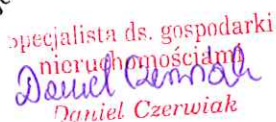 specjalista ds. gospodarki
nieruchomościami
Daniel Czerwiak
Daniel Czerwiak